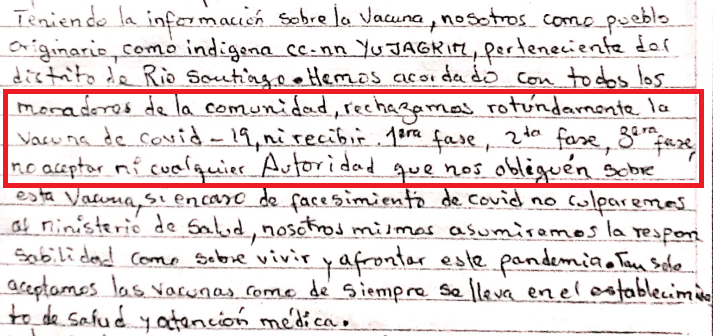 Teniendo la información sobre la vacuna, nosotros como pueblo
originario, como indigena cc.nn YUJAGKIM, perteneciente del
distrito de Rio Santiago. Hemos acordado con todos los
moradores de la comunidad, rechazamos rotúndamente la
vacuna de covid-19, ni recibir. 1era fase, 2da fase, 3era fase,
no aceptar ni cualquier Autoridad que nos obliguén sobre
esta vacuna, si en caso de facesimiento de covid no culparemos
al ministerio de salud, nosotros mismos asumiramos la respon
sabilidad como sobre vivir y afrontar este pandemia. Tan solo
aceptamos las vacunas como de siempre se lleva en el establecimien
to de salud y atención médica.